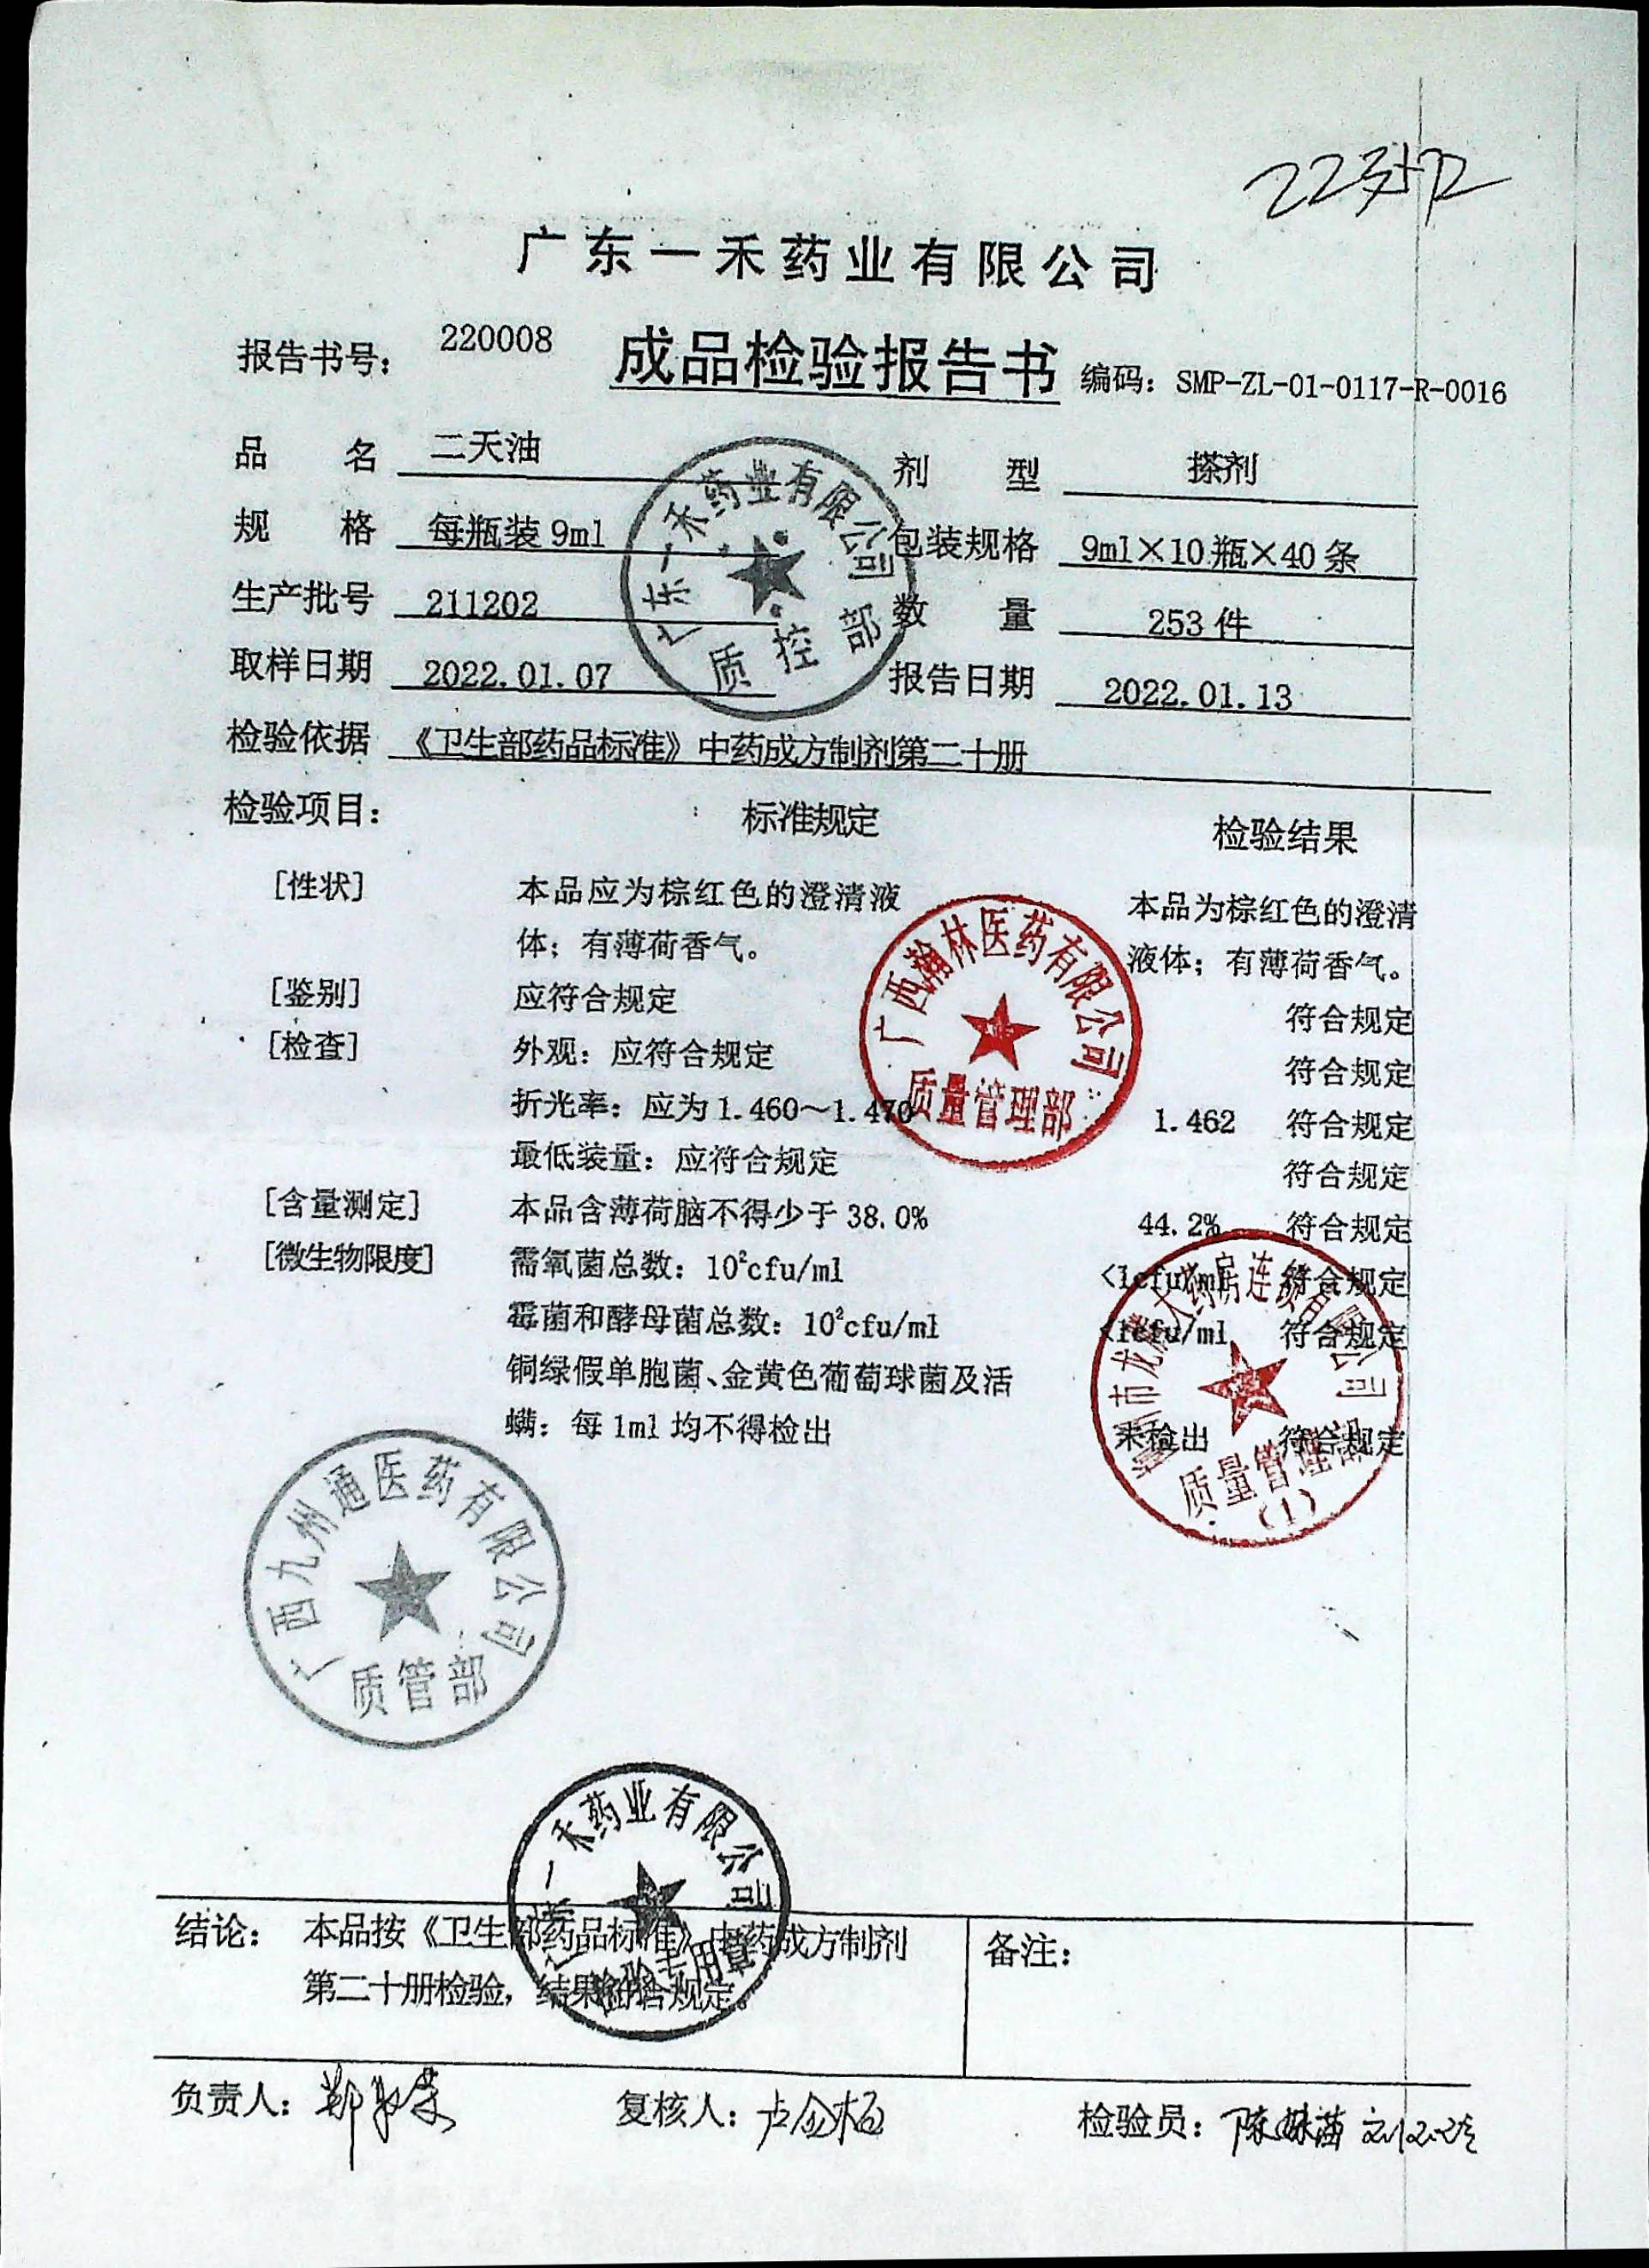 广东一禾药业有限公司
报告书号: 220008 成品检验报告书 编码: SMP-ZL-01-0117-R-0016
品名 二天油 剂型 搽剂
规格 每瓶装9ml 包装规格 9ml×10瓶×40条
生产批号 211202 数量 253件
取样日期 2022.01.07 报告日期 2022.01.13
检验依据 《卫生部药品标准》中药成方制剂第二十册
检验项目: 标准规定 检验结果
[性状] 本品应为棕红色的澄清液 本品为棕红色的澄清
体；有薄荷香气。 液体；有薄荷香气。
[鉴别] 应符合规定 符合规定
[检查] 外观：应符合规定 符合规定
折光率：应为1.460～1.470 1.462 符合规定
最低装量：应符合规定 符合规定
[含量测定] 本品含薄荷脑不得少于38.0% 44.2% 符合规定
[微生物限度] 需氧菌总数：10²cfu/ml <1cfu/ml 符合规定
霉菌和酵母菌总数：10²cfu/ml <1cfu/ml 符合规定
铜绿假单胞菌、金黄色葡萄球菌及活
螨：每1ml均不得检出 未检出 符合规定
广东一禾药业有限公司
质控部
广西瀚林医药有限公司
质量管理部
市龙 大药房连锁有限公司
质量管理部
(1)
广西九州通医药有限公司
质管部
广东一禾药业有限公司
检验专用章
结论: 本品按《卫生部药品标准》中药成方制剂 备注:
第二十册检验，结果符合规定。
负责人: 复核人: 卢金梅 检验员: